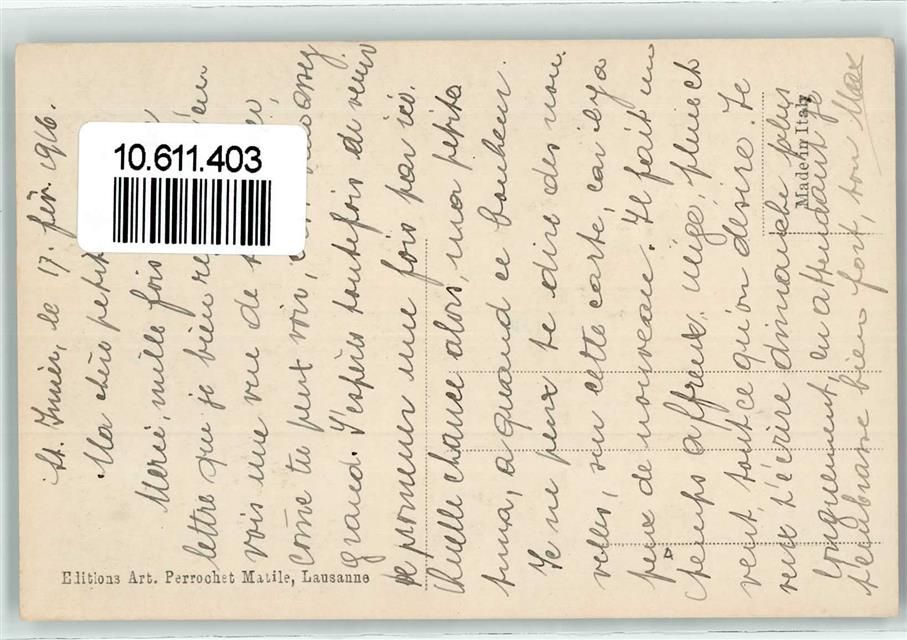 St. Imier, le 17. fév. 1916.
Ma chère petite
Merci, mille fois
lettre que j'ai bien
vois une vue de
come tu peux voir, assez
grand. J'espère toutefois de venir
te promener une fois par ici.
Quelle chance alors, ma petite
Anna, a quand ce bonheur.
Je ne peux te dire des nou-
velles, sur cette carte, car il y a
peux de nouveau. Il fait un
temps affreux, neige, pluie et
vent, tout ce qu'on desire. Je
veux t'écrire dimanche plus
longuement, en attendant je
t'embrasse bien fort, ton Max
10.611.403
Editions Art. Perrochet Matile, Lausanne
Made in Italy